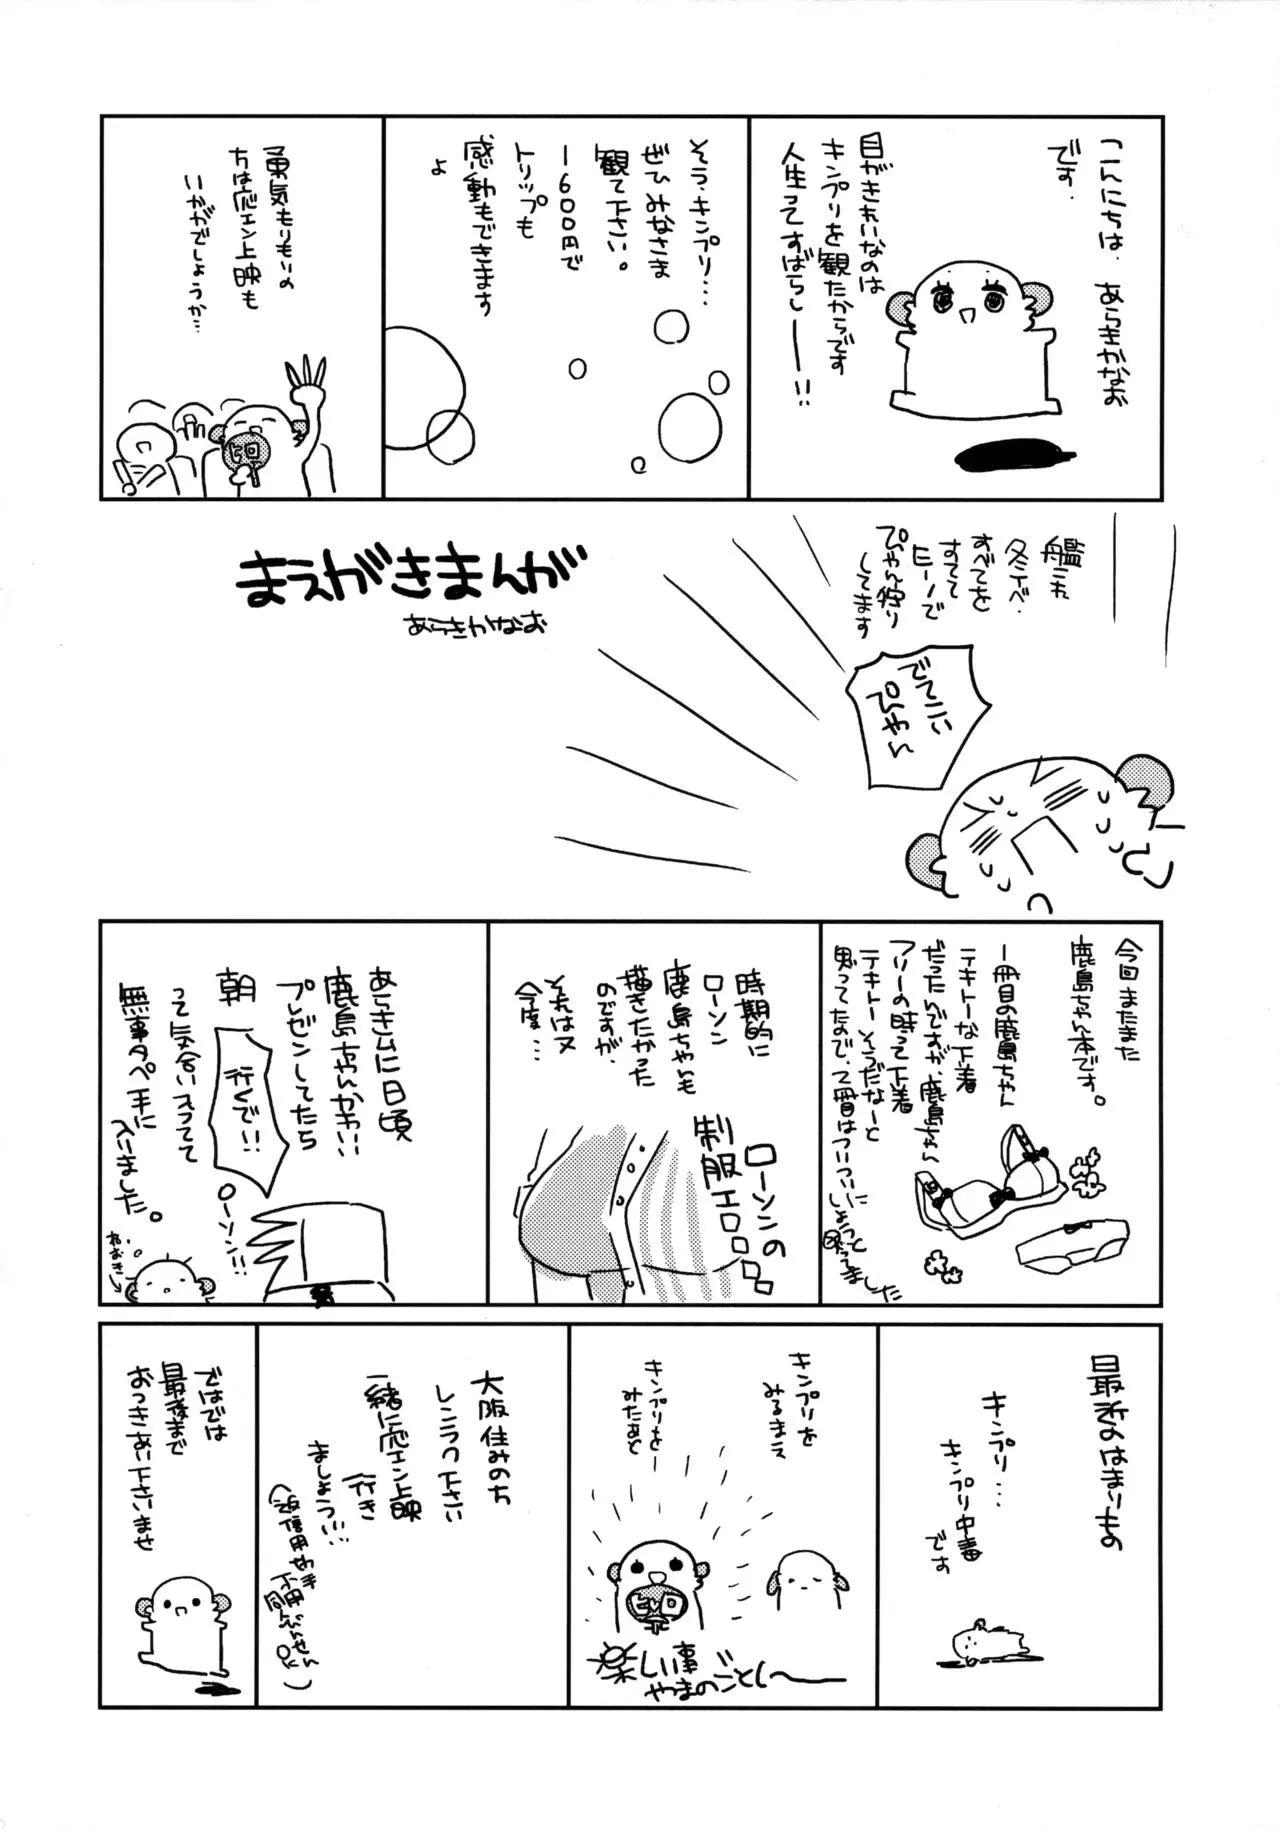 こんにちは．あらきかなお
です．
目がきれいなのは
キンプリを観たからです
人生ってすばらしーー!!
そう、キンプリ…
ぜひみなさま
観て下さい。
1600円で
トリップも
感動もできます
よ
勇気もりもりの
方は応エン上映も
いかがでしょうか…
ヒロ
まえがきまんが
あらきかなお
艦これ
冬イベ．
すべてを
すてて
ヒーノで
ぴゃん狩り
してます
でてこい
ぴゃん
今回またまた
鹿島ちゃん本です。
一冊目の鹿島ちゃん
テキトーな下着
だったんですが、鹿島ちゃん
フリーの時って下着
テキトーそうだなーと
思ってたので、2冊はついついに
しょうっと
時期的に
ローソン
鹿島ちゃんも
描きたかった
のですが、
それは又
今度…
ローソンの
制服エロロロロ
あらきムに日頃
鹿島ちゃんかわいい
プレゼンしてたら
朝
行くで!!
ローソン!!
って気合い入ってて
無事タペ手に
入りました。
ねおき
最近のはまりもの
キンプリ…
キンプリ中毒
です
キンプリを
みるまえ
キンプリをー
みたあと
ヒロ
楽しい事
やまのごとし〜
大阪住みの方
レンラク下さい
一緒に応エン上映
行き
ましょうい…
(返信用切手
不用びんせん
同
OK)
ではでは
最後まで
おつきあい下さいませ